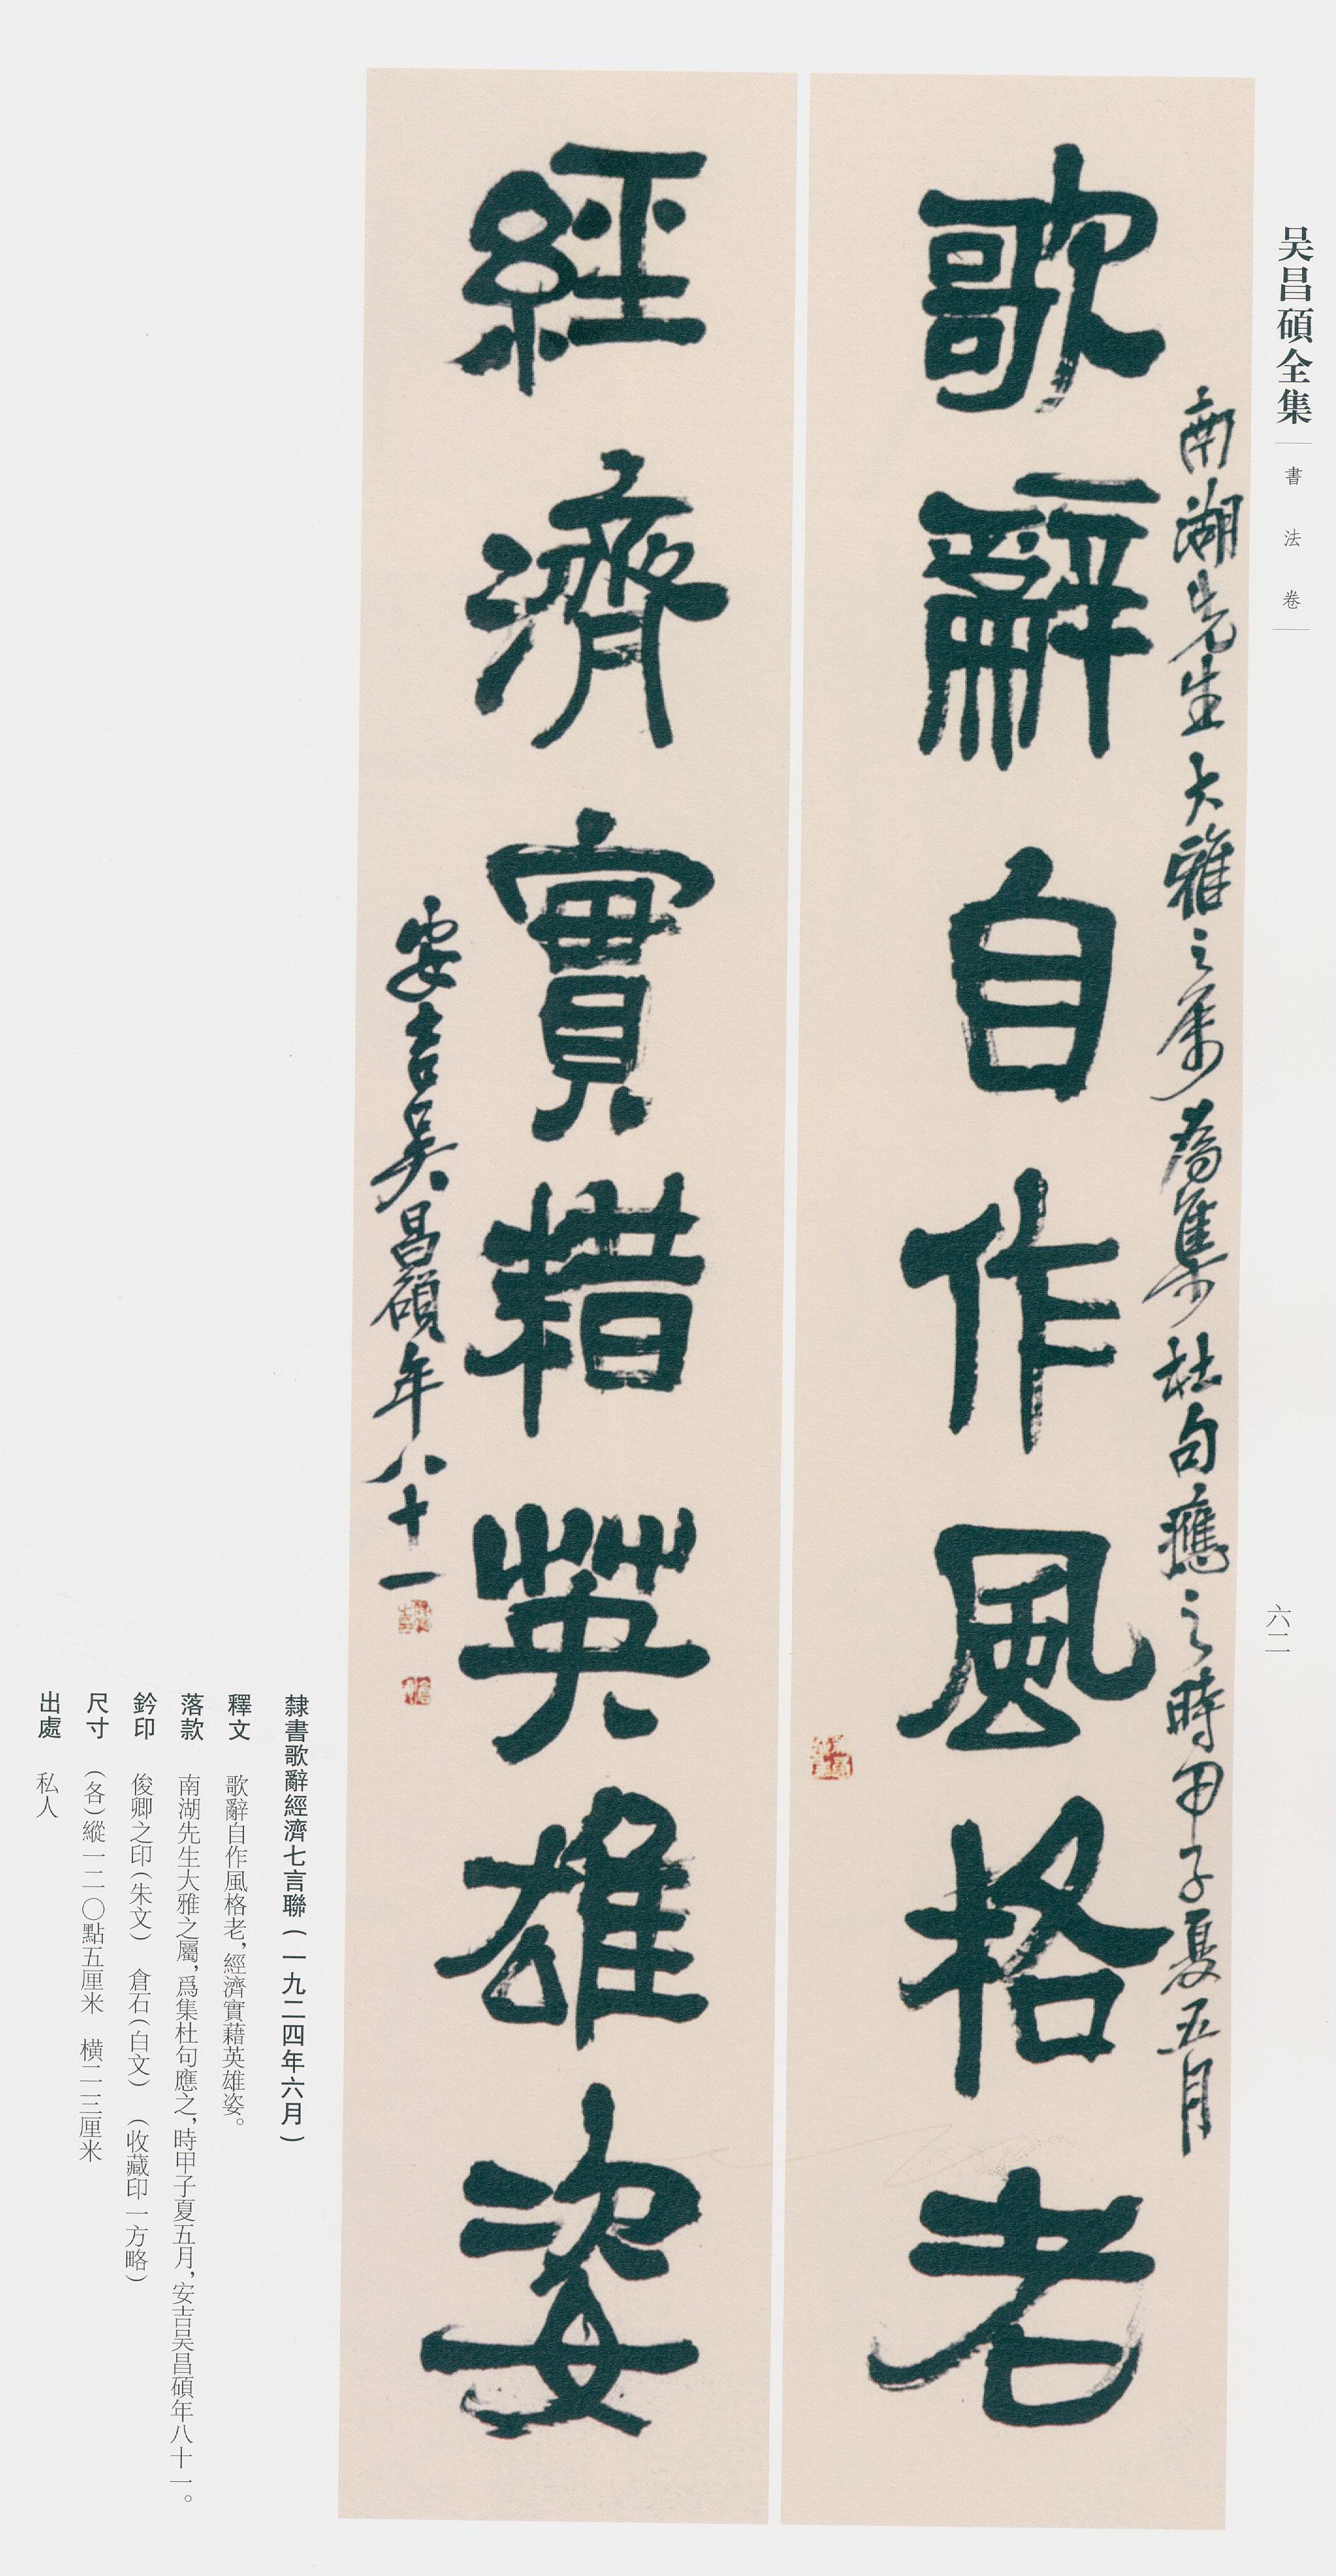 吴昌碩全集
書法卷
六二
南湖先生大雅之屬為集杜句應之時甲子夏五月
歌辭自作風格老
經濟實藉英雄姿
安吉吴昌碩年八十一
隸書歌辭經濟七言聯(一九二四年六月)
釋文 歌辭自作風格老,經濟實藉英雄姿。
落款 南湖先生大雅之屬,爲集杜句應之,時甲子夏五月,安吉吴昌碩年八十一。
鈐印 俊卿之印(朱文) 倉石(白文) (收藏印一方略)
尺寸 (各)縱一二〇點五厘米 橫二三厘米
出處 私人